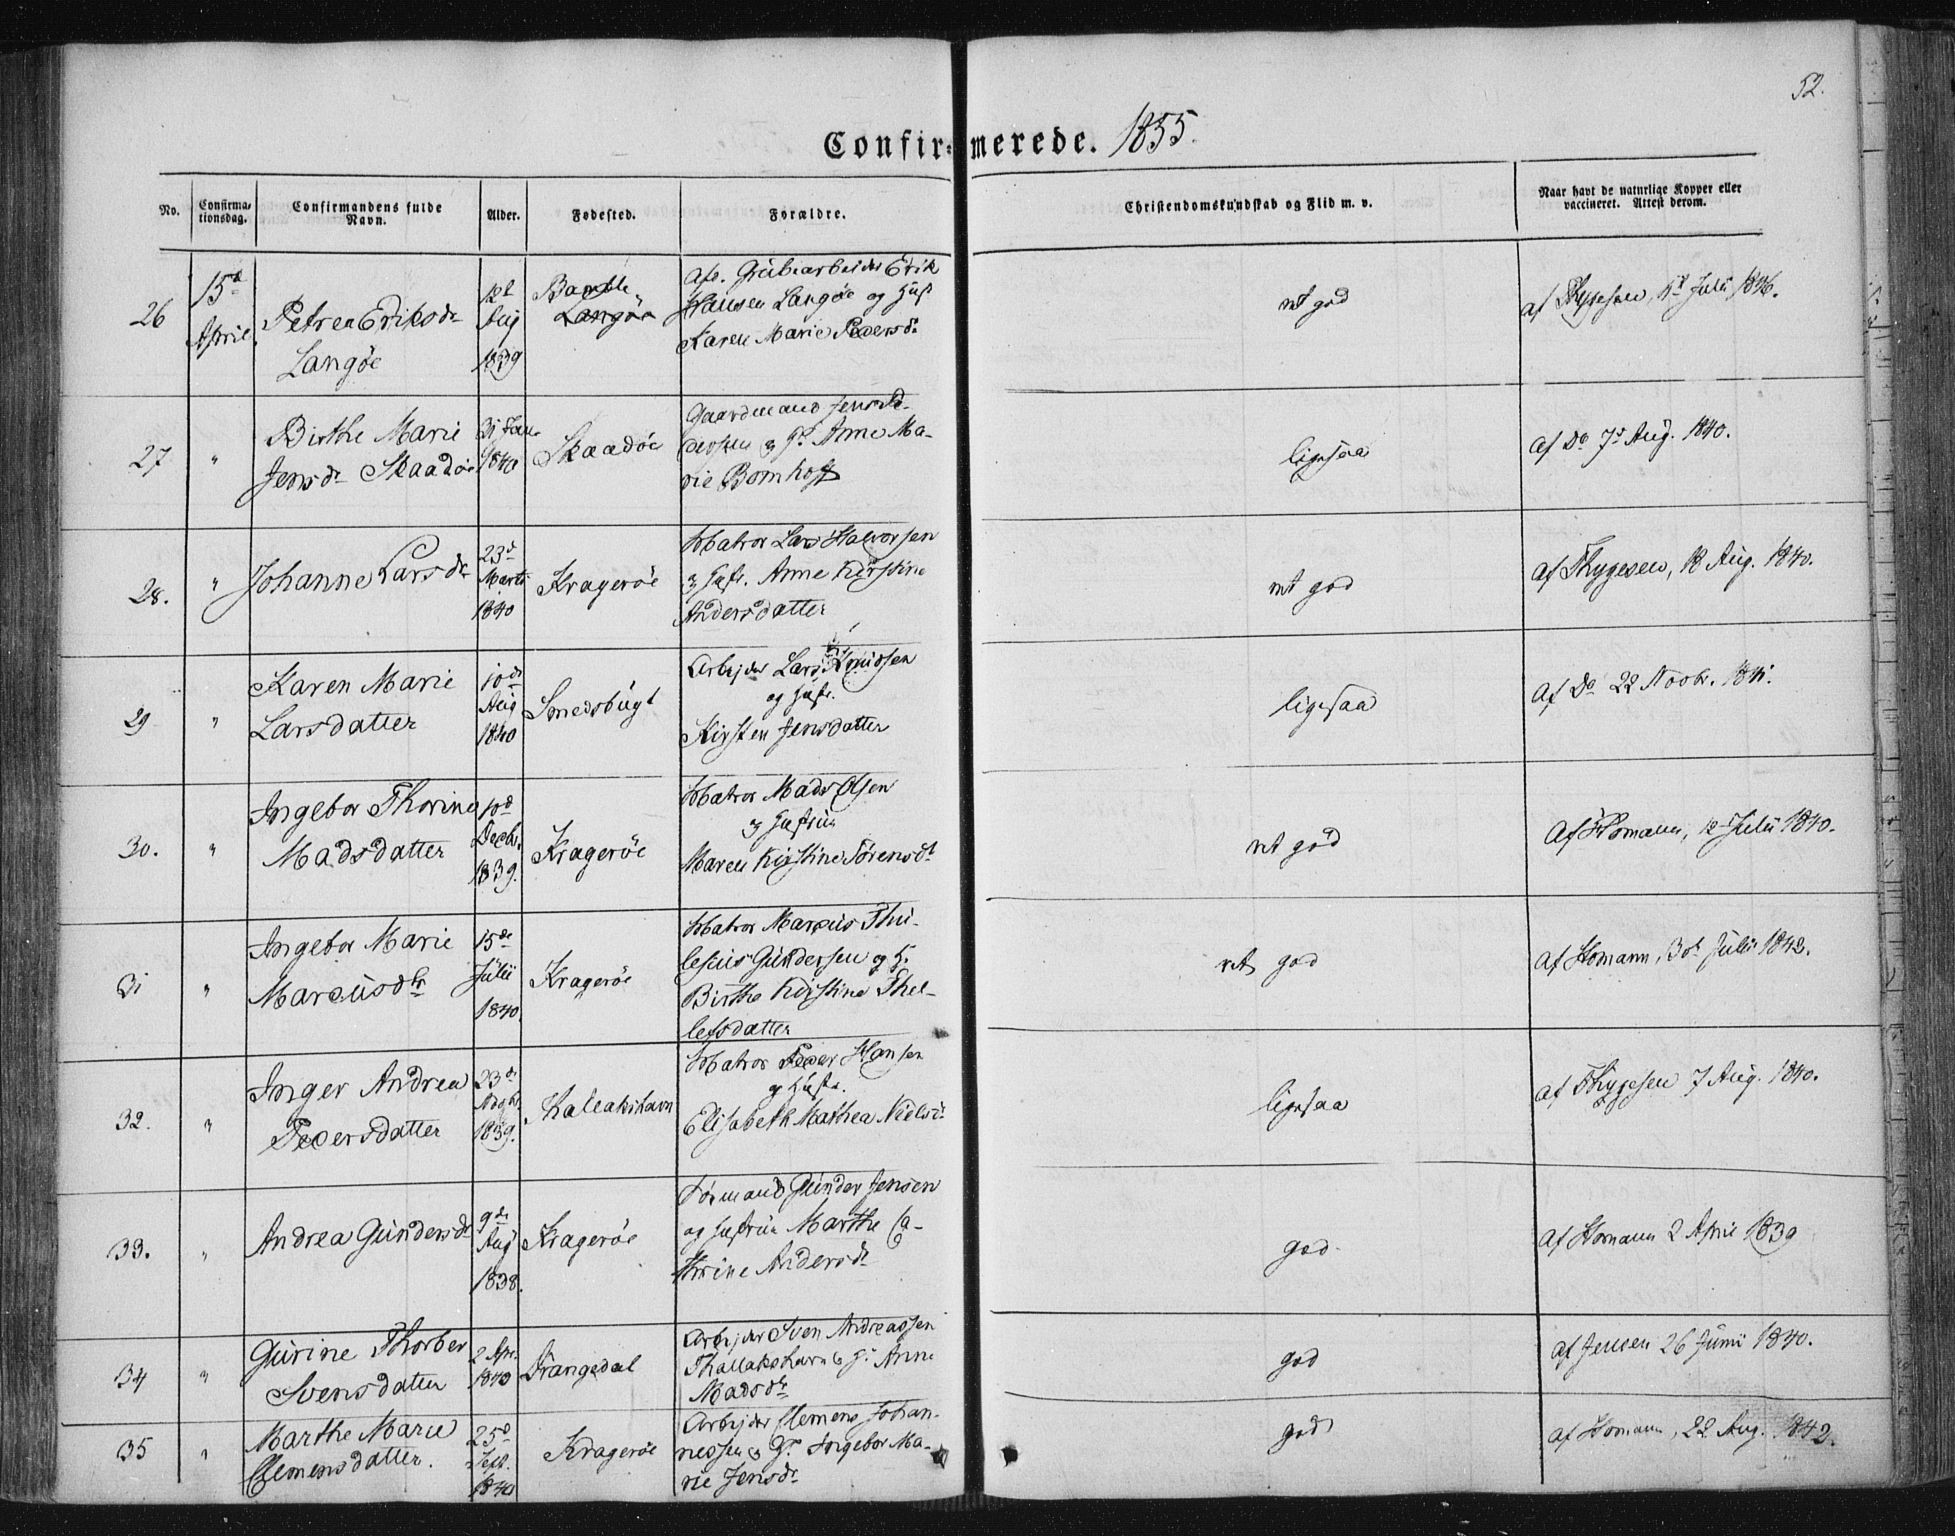 52.
Confirmerede. 1855.
No.
Confirma-
tionsdag.
Confirmandens fulde
Navn.
Alder.
Fødested.
Forældre.
Christendomskundskab og Flid m. v.
Naar havt de naturlige Kopper eller
vaccineret. Attest derom.
26
15d
April.
Petrea Eriksdr
Langøe
12t
Aug
1839
Bamble
Langöe
Afs. Grubearbeider Erik
Hansen Langøe og Hust
Karen Marie Pedersdr
ret god
af Thygesen, Juli 1846.
27
"
Birthe Marie
Jensdr Skaadøe
31 Jan
1840
Skaadöe
Gaardmand Jens Pe-
dersen & H. Anne Ma-
rie Bomhoff
ligesaa
af Do 7d Aug. 1840.
28.
"
Johanne Larsdr
23d
Marts
1840
Kragerøe
Matros Lars Halvorsen
& Hustr. Anne Kirstine
Andersdatter
ret god
af Thygesen, 18 Aug. 1840.
29
"
Karen Marie
Larsdatter
10de
Aug
1840
Smedsbugt
Arbejder Lars Knudsen
og Hustr.
Kirsten Jensdatter
ligesaa
af Do 22 Novbr. 1841.
30.
"
Ingebor Thorine
Madsdatter
10d
Decbr.
1839.
Kragerøe
Matros Mads Olsen
& Hustrue
Maren Kirstine Sörensdr
ret god
af Homann, 12 Juli 1840.
31
"
Ingebor Marie
Marcusdtr
15de
Julii
1840.
Kragerøe
Matros Marcus Thu-
lesius Gundersen og H.
Birthe Kirstine Thel-
lefsdatter
ret god
af Homann, 30t Julii 1842.
32.
"
Inger Andrea
Pedersdatter
23de
Novbr
1839.
Kalleakshavn
Matros Peder Hansen
og Hustr.
Elisabeth Mathea Nielsd.
ligesaa
af Thygesen 7 Aug. 1840.
33.
"
Andrea Gundersdr
9de
Aug
1838.
Kragerøe
Sömand Gunder Jensen
og Hustrue Marthe Ca-
thrine Andersdr
god
af Homann 2 April 1839
34
"
Gurine Thorber
Svensdatter
2 Apr.
1840
Drangedal
Arbejder Sven Andreassen
Thallakshavn & H. Anne
Madsdtr
god
af Jensen 26 Junii 1840.
35
"
Marthe Marie
Clemensdatter.
25d
Sept.
1840
Kragerøe
Arbejder Clemens Johan-
nessen & H. Ingebor Ma-
rie Jensdr
god
af Homann, 22 Aug. 1842.